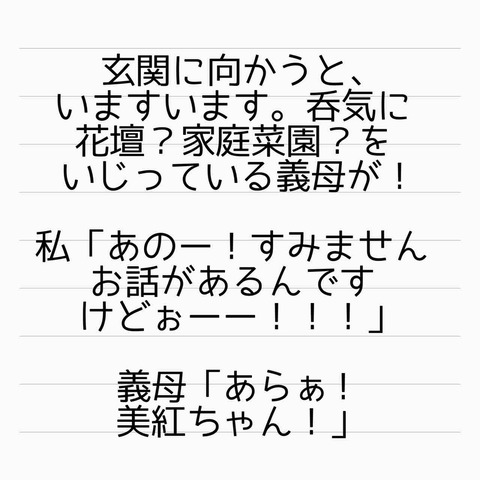 玄関に向かうと、
いますいます。呑気に
花壇？家庭菜園？を
いじっている義母が！
私「あのー！すみません
お話があるんです
けどぉーー！！！」
義母「あらぁ！
美紅ちゃん！」